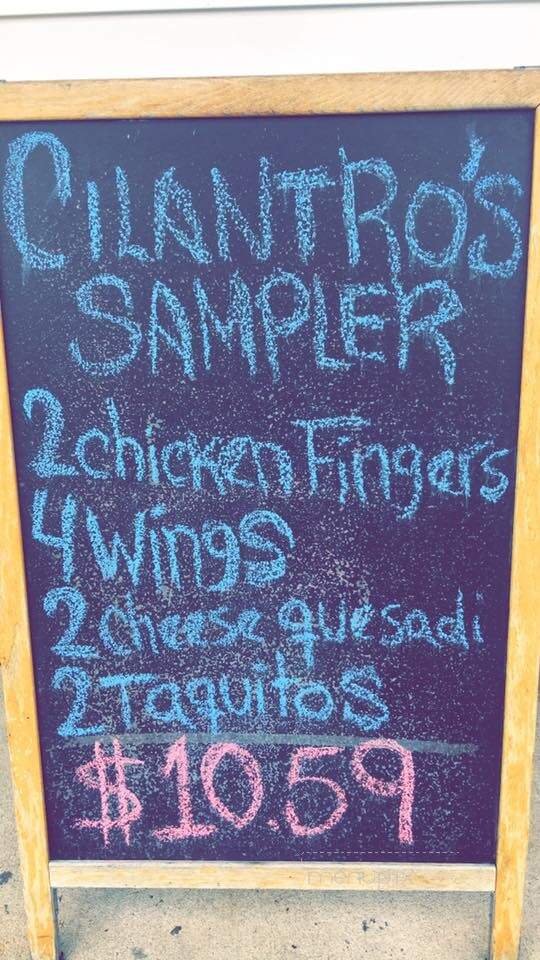 CILANTRO'S
SAMPLER
2 chicken Fingers
4 Wings
2 cheese quesadi
2 Taquitos
$10.59
menupix